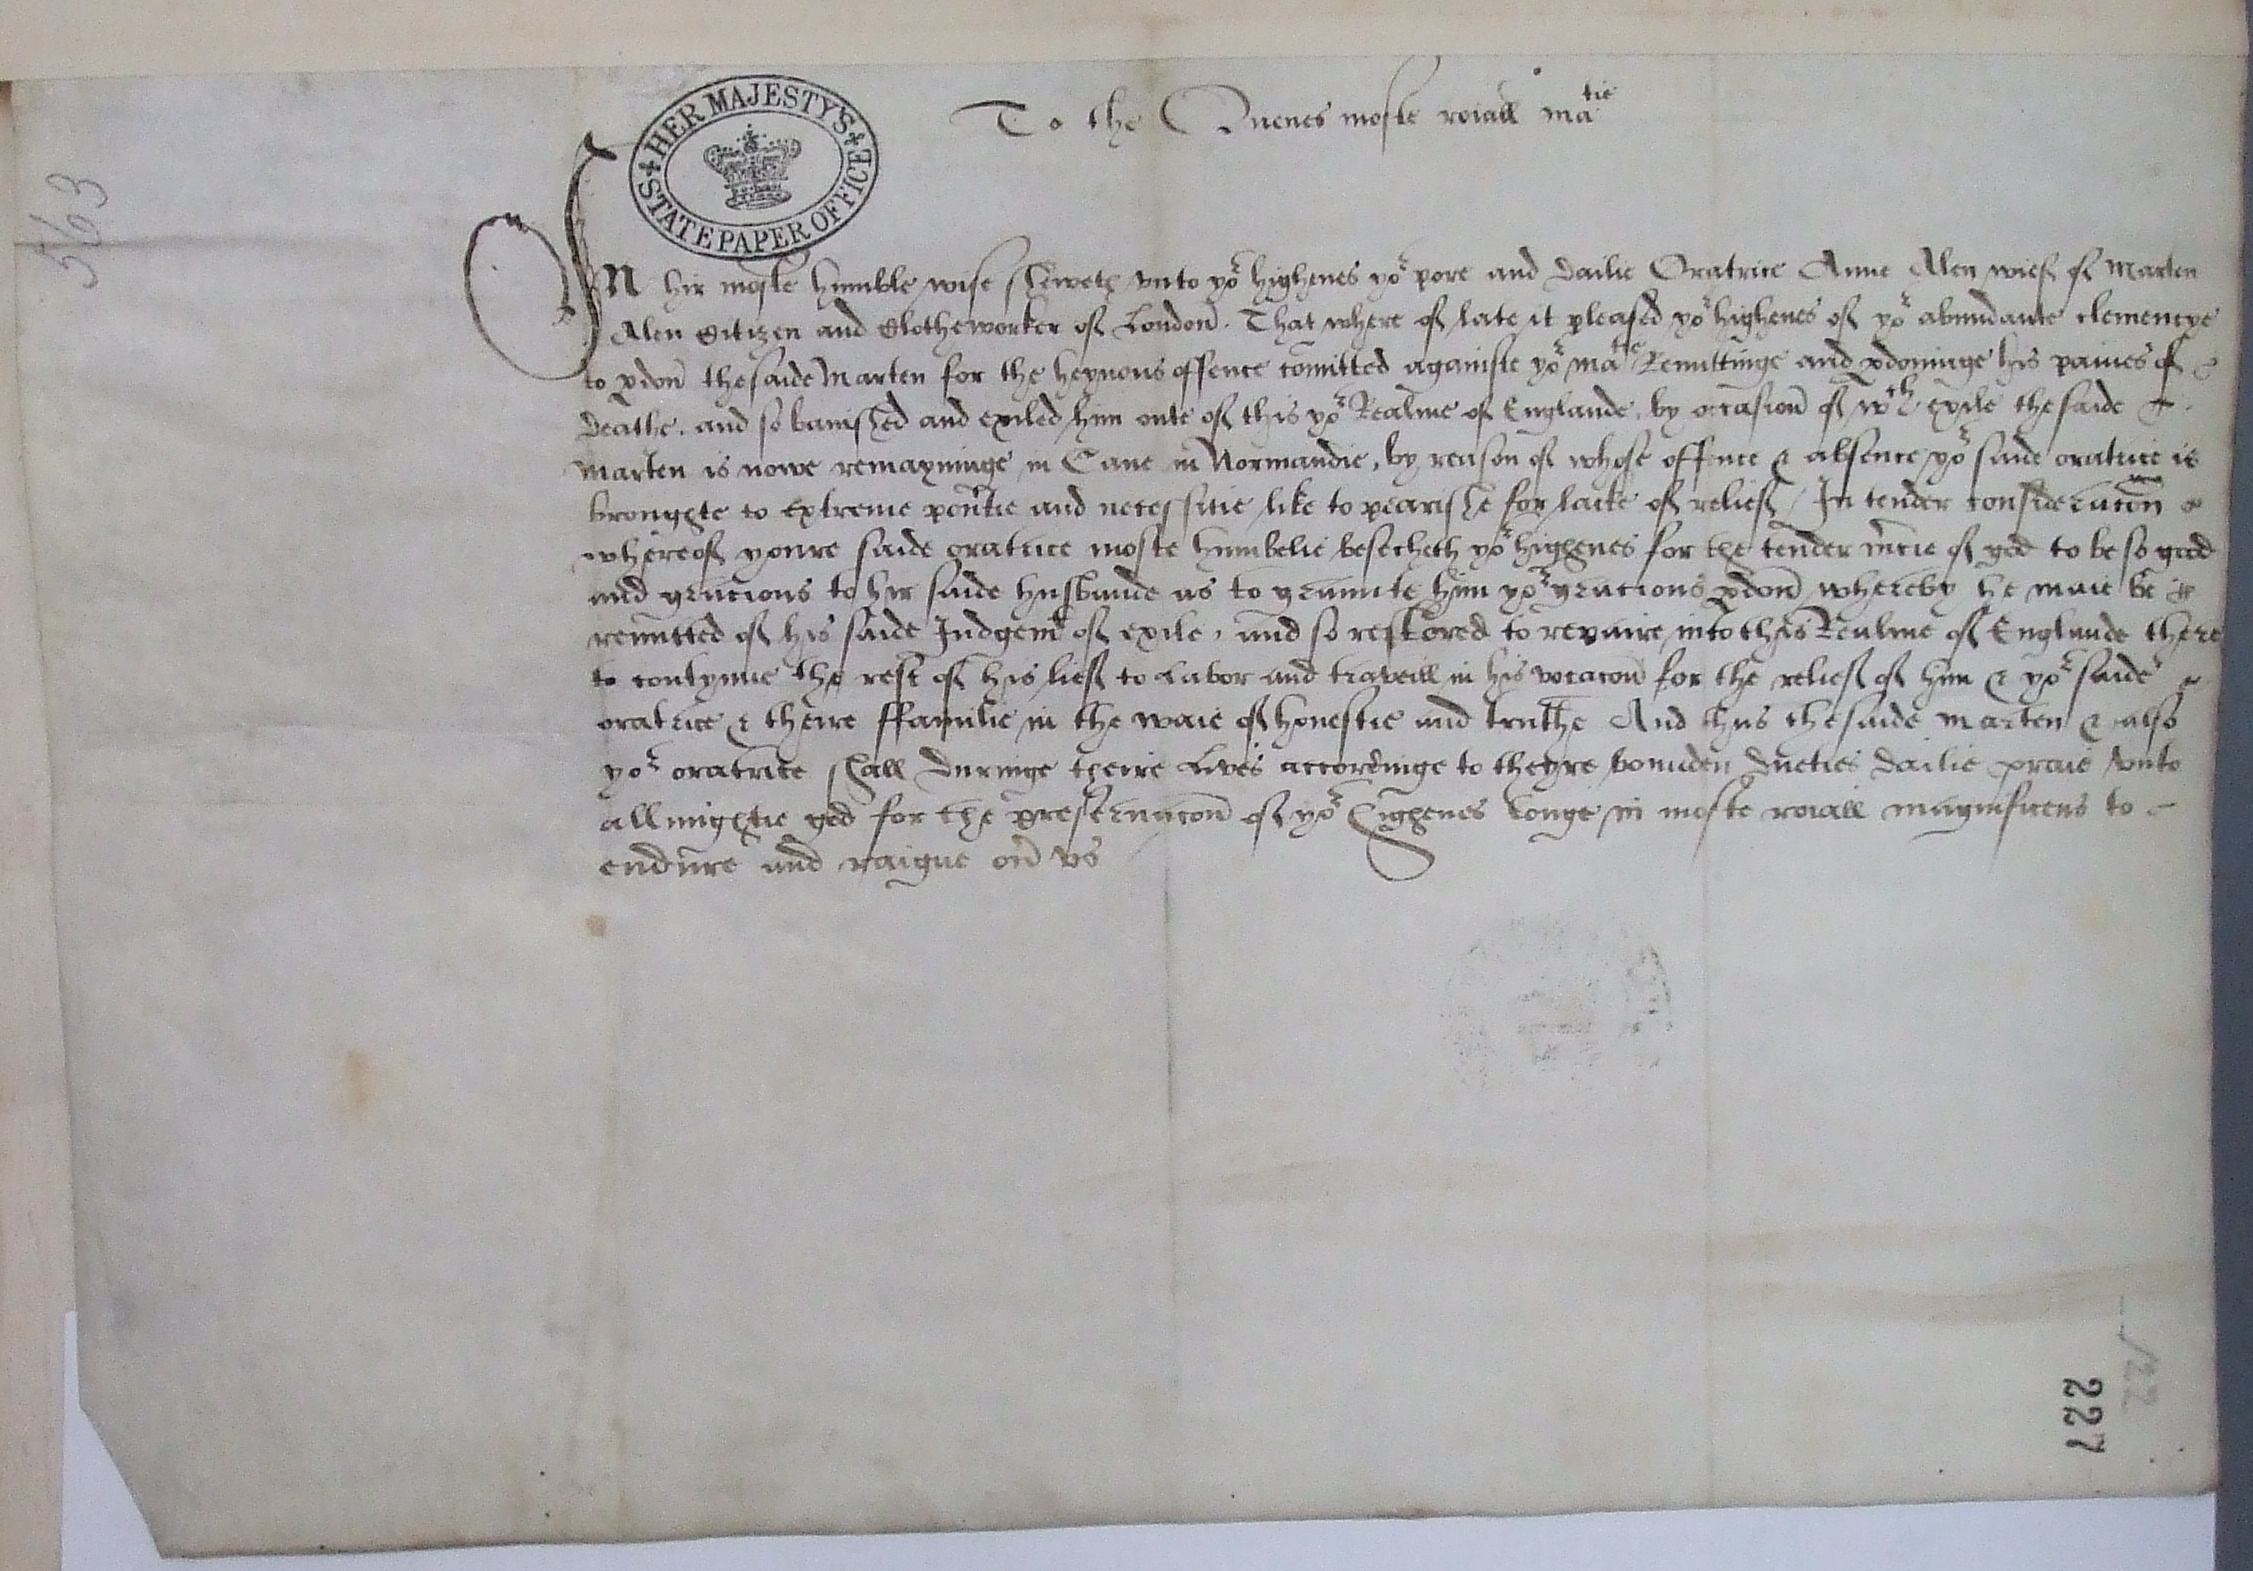 To the Quenes moste roiall ma^tie
HER MAJESTY'S
STATE PAPER OFFICE
563
IN hir moste humble wise sheweth vnto yo^r highenes yo^r pore and dailie Oratrice Anne Alen wief of Marten
Alen Citizen and Clotheworker of London. That where of late it pleased yo^r highenes of yo^r abundante clemencye
to pdon the saide Marten for the heynous offence comitted againste yo^r ma^tie Remittinge and pdoninge his paines of
deathe. and so banished and exiled him oute of this yo^r Realme of Englande. by occasion of w^ch exile the saide
Marten is nowe remayninge in Cane in Normandie, by reason of whose offence & absence yo^r saide oratrice is
broughte to extreme pou'tie and necessitie like to pearishe for lacke of relief / In tender consideracon
whereof youre saide oratrice moste humbelie besecheth yo^r highenes for the tender m'cie of god to be so good
and gracious to hir saide husbande as to graunte him yo^r gracious pdon whereby he maie be
remitted of his saide Iudgem^t of exile, and so restored to repaire into this Realme of Englande there
to contynue the rest of his lief to Labor and traveill in his vocacon for the relief of him & yo^r saide
oratrice & theire ffamilie in the waie of honestie and truthe And thus the saide Marten & also
yo^r oratrice shall duringe theire Lives accordinge to theyre bounden dueties dailie praie vnto
allmightie god for the preseruacon of yo^r highenes Longe in moste roiall magnificens to
endure and raigne ou' vs
122
227